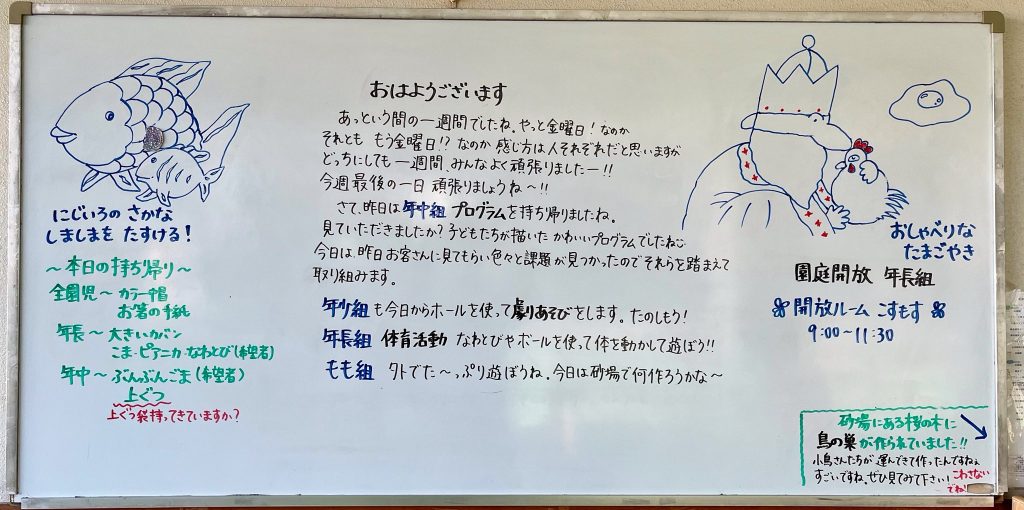 おはようございます
あっという間の一週間でしたね。やっと金曜日！なのか
それとも もう金曜日!? なのか 感じ方は人それぞれだと思いますが
どっちにしても 一週間、みんなよく頑張りましたー!!
今週最後の一日 頑張りましょうね〜!!
さて、昨日は 年中組 プログラムを持ち帰りましたね。
見ていただきましたか？子どもたちが描いた かわいいプログラムでしたね
今日は、昨日お客さんに見てもらい色々と課題が見つかったのでそれらを踏まえて
取り組みます。
年少組 も今日からホールを使って劇あそびをします。たのしもう！
年長組 体育活動 なわとびやボールを使って体を動かして遊ぼう!!
もも組 外でた〜っぷり遊ぼうね。今日は砂場で何作ろうかな〜
にじいろの さかな
しましまを たすける！
〜本日の持ち帰り〜
全園児〜 カラー帽
お箸の手紙
年長〜 大きいカバン
こま・ピアニカ・なわとび(希望者)
年中〜 ぶんぶんごま(希望者)
上ぐつ
上ぐつ袋持ってきていますか？
おしゃべりな
たまごやき
園庭開放 年長組
開放ルーム こすもす
9:00〜11:30
砂場にある桜の木に
鳥の巣が作られていました!!
小鳥さんたちが 運んできて作ったんですねぇ
すごいですね。ぜひ見てみて下さい！こわさない
でね！